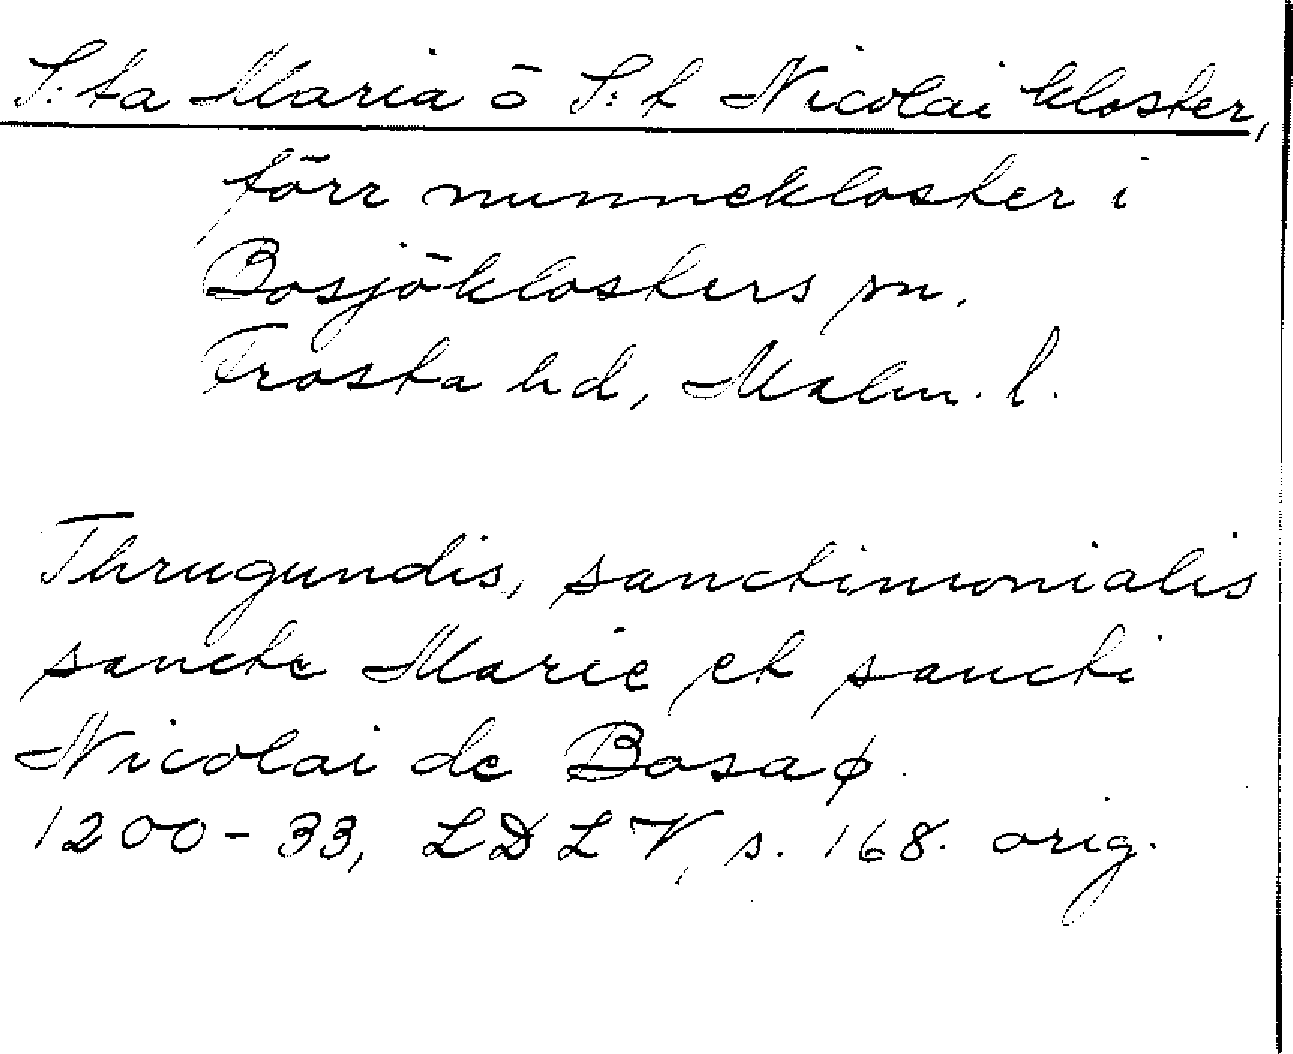 S:ta Maria o S:t Nicolai kloster,
förr nunnekloster i
Bosjöklosters sn.
Frosta hd, Malm. l.
Thrugundis, sanctimonialis
sancte Marie et sancti
Nicolai de Bosaø.
1200-33, LDLV, s. 168. orig.